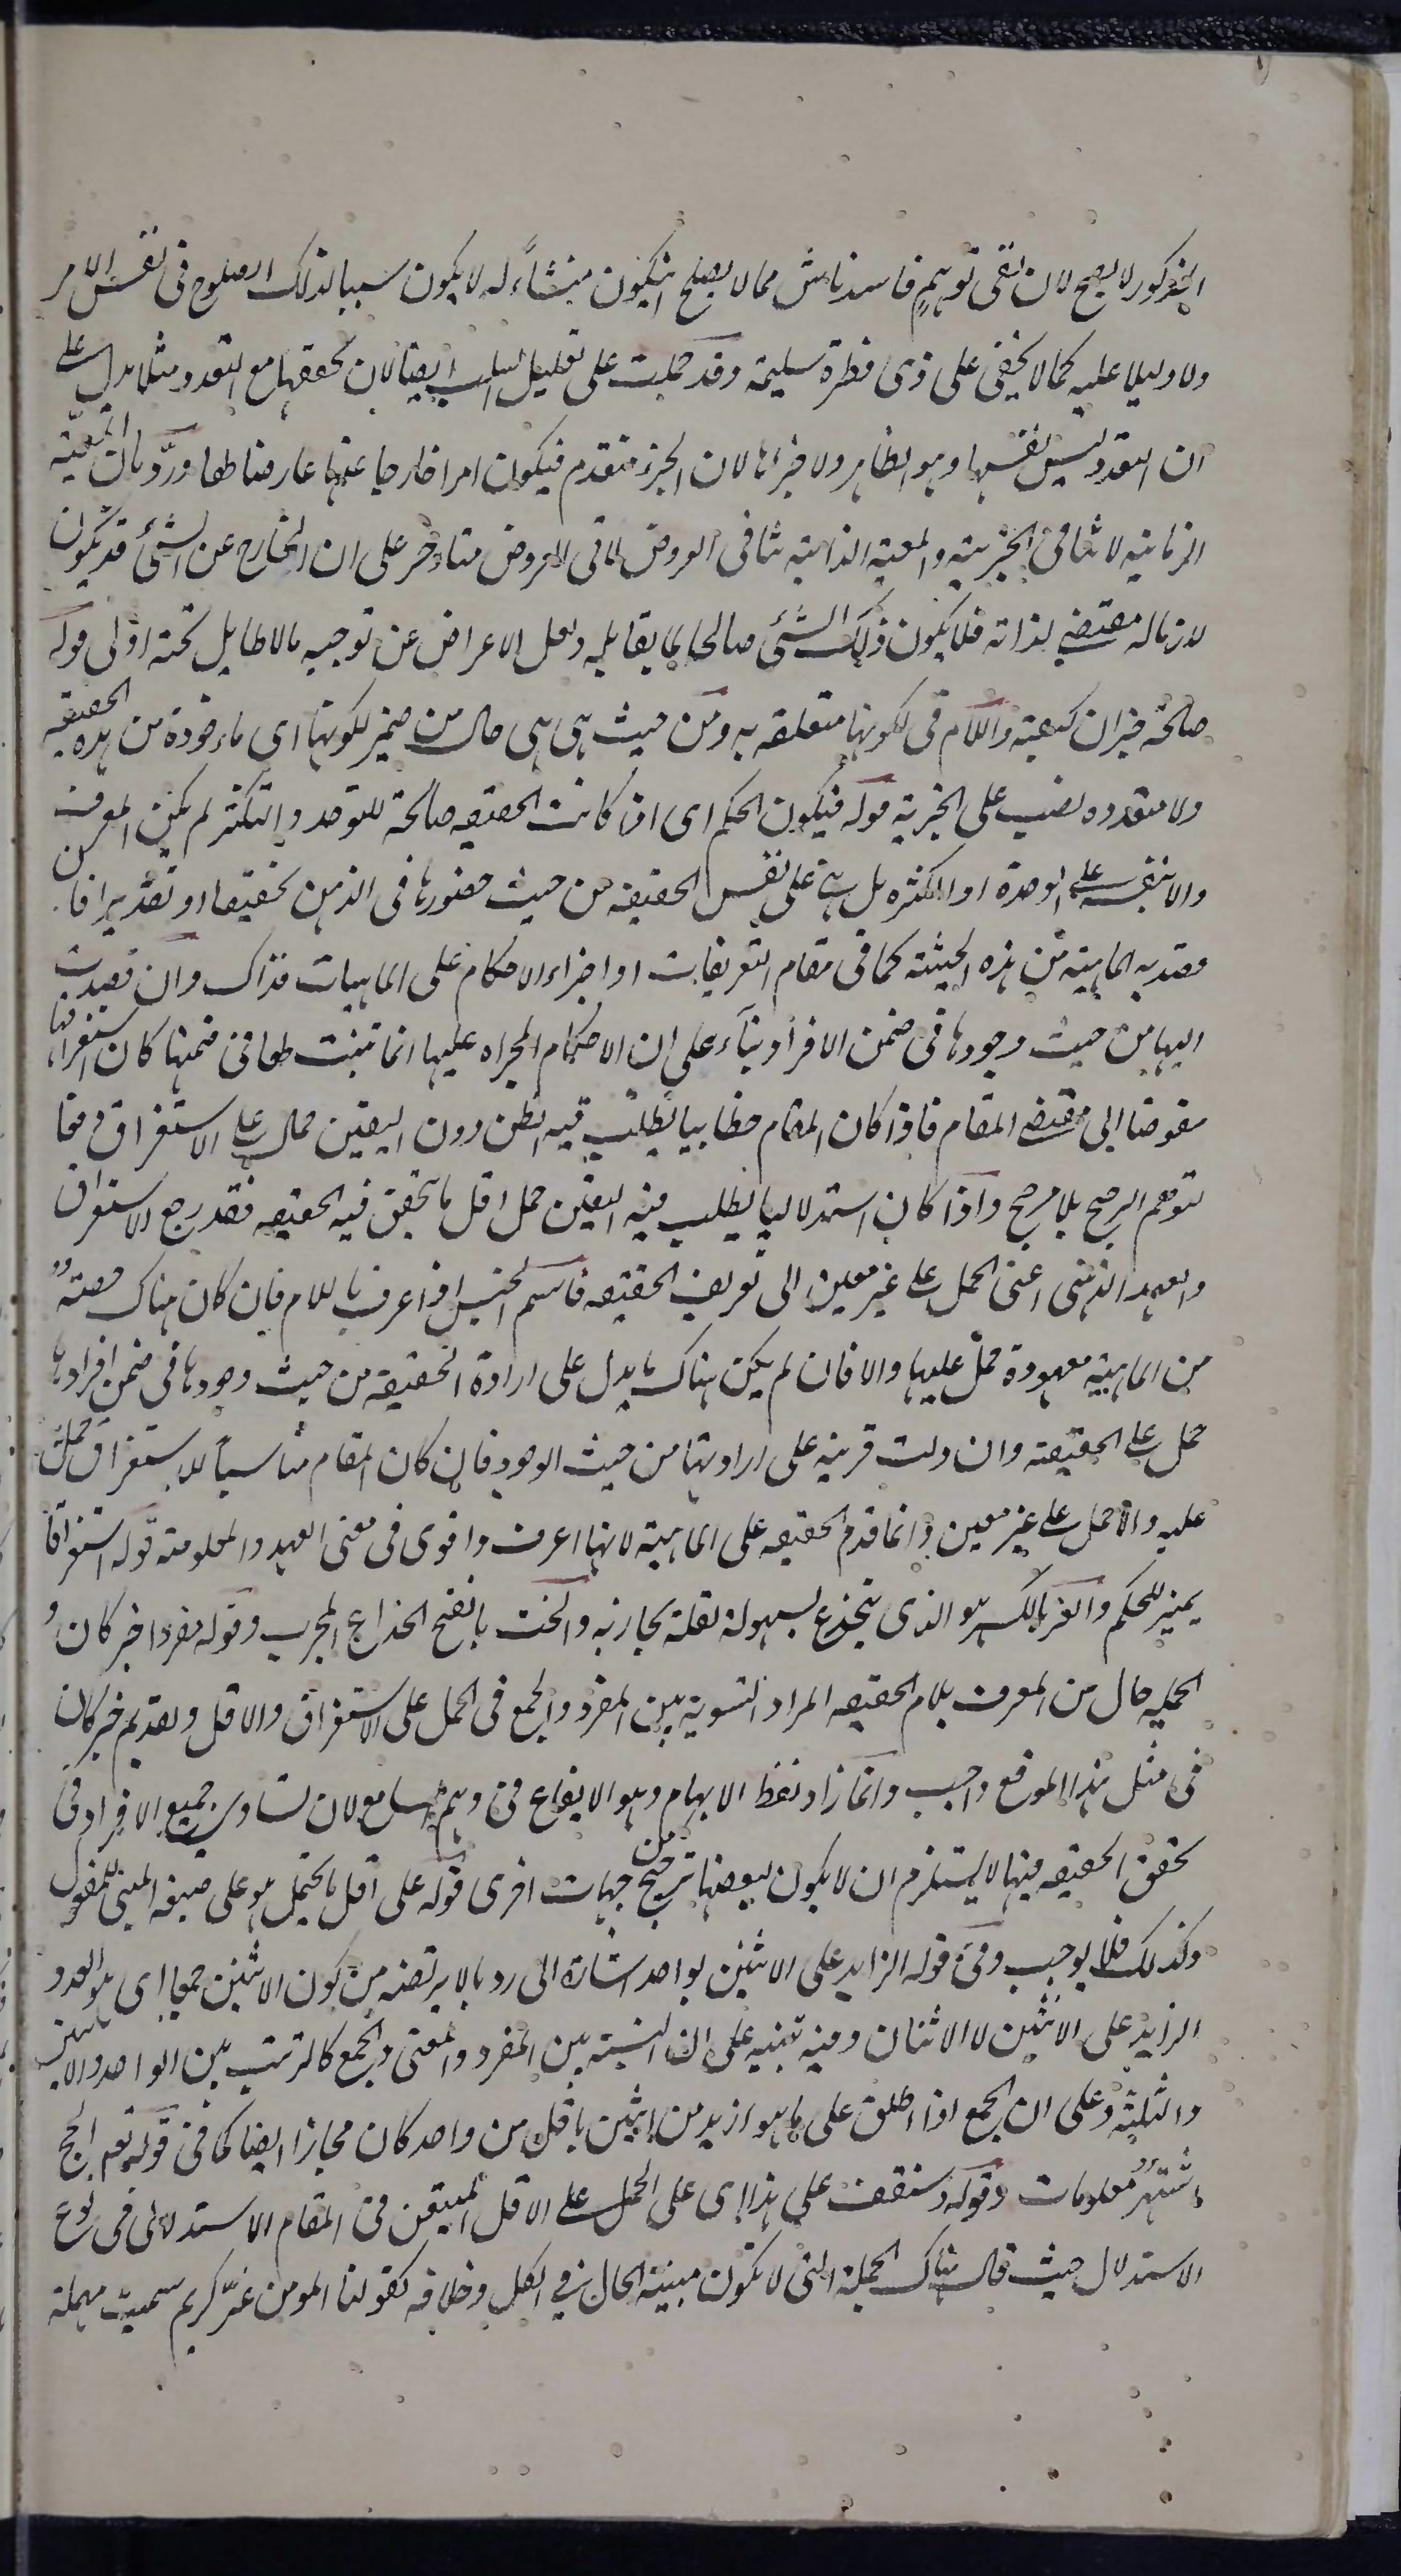 المذكور لا يصح لان نفى توهم فاسد ناش مما لا يصلح ان يكون منشأ له لا يكون سببا لذلك الصلوح فى نفس الامر
ولا دليلا عليه كما لا يخفى على ذى فطرة سليمة وقد حملت على تعليل السلب ايضا لان تحققها مع التعدد مثلا يدل على
ان التعدد ليس نفسها وهو الظاهر ولا جزأها لان الجزء متقدم فيكون امرا خارجا عنها عارضا لها ورد بان المعية
الزمانية لا تنافى الجزئية والمعية الذاتية تنافى العروض لما فى العروض متأخر على ان الخارج عن الشئ قد يكون
لازما له مقتضى لذاته فلا يكون ذلك الشئ صالحا لما يقابله ولعل الاعراض عن توجيه ما لا طايل تحته اولى قوله
صالحة خبر ان كمعية واللام فى لكونها متعلقه به ومن حيث هى هى حال من ضمير لكونها اى ماءخوذة من هذه الحيثيه
ولا متعدده نصب على الخبرية قوله فيكون الحكم اى اذا كانت الحقيقه صالحة للتوحد والتكثر لم يكن المعرف
والا نقيسه على الوحدة او الكثره بل هى على نفس الحقيقه من حيث حضورها فى الذهن تحقيقا او تقديرا فان
قصد به الماهية من هذه الحيثية كما فى مقام التعريفات او اجراء الاحكام على الماهيات فذاك وان قصدت
اليها من حيث وجودها فى ضمن الافراد بناء على ان الاحكام المجراه عليها انما تثبت لها فى ضمنها كان استغراقها
مفوضا الى مقتضى المقام فاذا كان المقام خطابيا يطلب فيه الظن دون اليقين حمل على الاستغراق دفعا
لتوهم الترجيح بلا مرجح واذا كان استدلاليا يطلب فيه اليقين حمل اقل ما يتحقق فيه الحقيقه فقد رجع الاستغراق
والعهد الذهنى اعنى الحمل على غير معين الى تعريف الحقيقه فاسم الجنس اذا عرف باللام فان كان هناك حصة
من الماهية معهودة حمل عليها والا فان لم يكن هناك ما يدل على ارادة الحقيقه من حيث وجودها فى ضمن افرادها
حمل على الحقيقه وان دلت قرينه على ارادتها من حيث الوجود فان كان المقام مناسبا للاستغراق حمل
عليه والا حمل على غير معين وانما قدم الحقيقه على الماهية لانها اعرف واقوى فى معنى العهد والمعلومة قوله استغراقا
يميز للحكم والغر بالكسر هو الذى ينخدع لسهولة لقلة تجاربه والخب بالفتح الخداع المجرب وقوله مفردا خبر كان و
الجمله حال من المعرف بلام الحقيقه المراد التسوية بين المفرد والجمع فى الحمل على الاستغراق والاقل وتقديم خبر كان
فى مثل هذا الموقع واجب وانما زاد لفظ الايهام وهو الايقاع فى وهم السامع لان تساوى جميع الافراد فى
تحقق الحقيقه فيها لا يستلزم ان لا يكون لبعضها ترجيح من جهات اخرى قوله على اقل ما يحتمل هو على صيغه المبنى للمفعول
وكذلك فلا يوجب وفى قوله الزايد على الاثنين بواحد اشارة الى رد ما لا يرتضيه من كون الاثنين جمعا اى هو العدد
الزايد على الاثنين لا الاثنان وفيه تنبيه على ان النسبة بين المفرد والمثنى والجمع كالترتيب بين الواحد والاثنين
والثلثة وعلى ان الجمع اذا اطلق على ما هو ازيد من اثنين باقل من واحد كان مجازا ايضا كما فى قوله تعم الحج
اشهر معلومات وقوله وستقف على هذا اى على الحمل على الاقل المتيقن فى المقام الاستدلالى فى نوع
الاستدلال حيث قال هناك الجملة التى لا تكون مبينة الحال فى الكل وخلافه كقولنا المومن غر كريم سميت مهملة